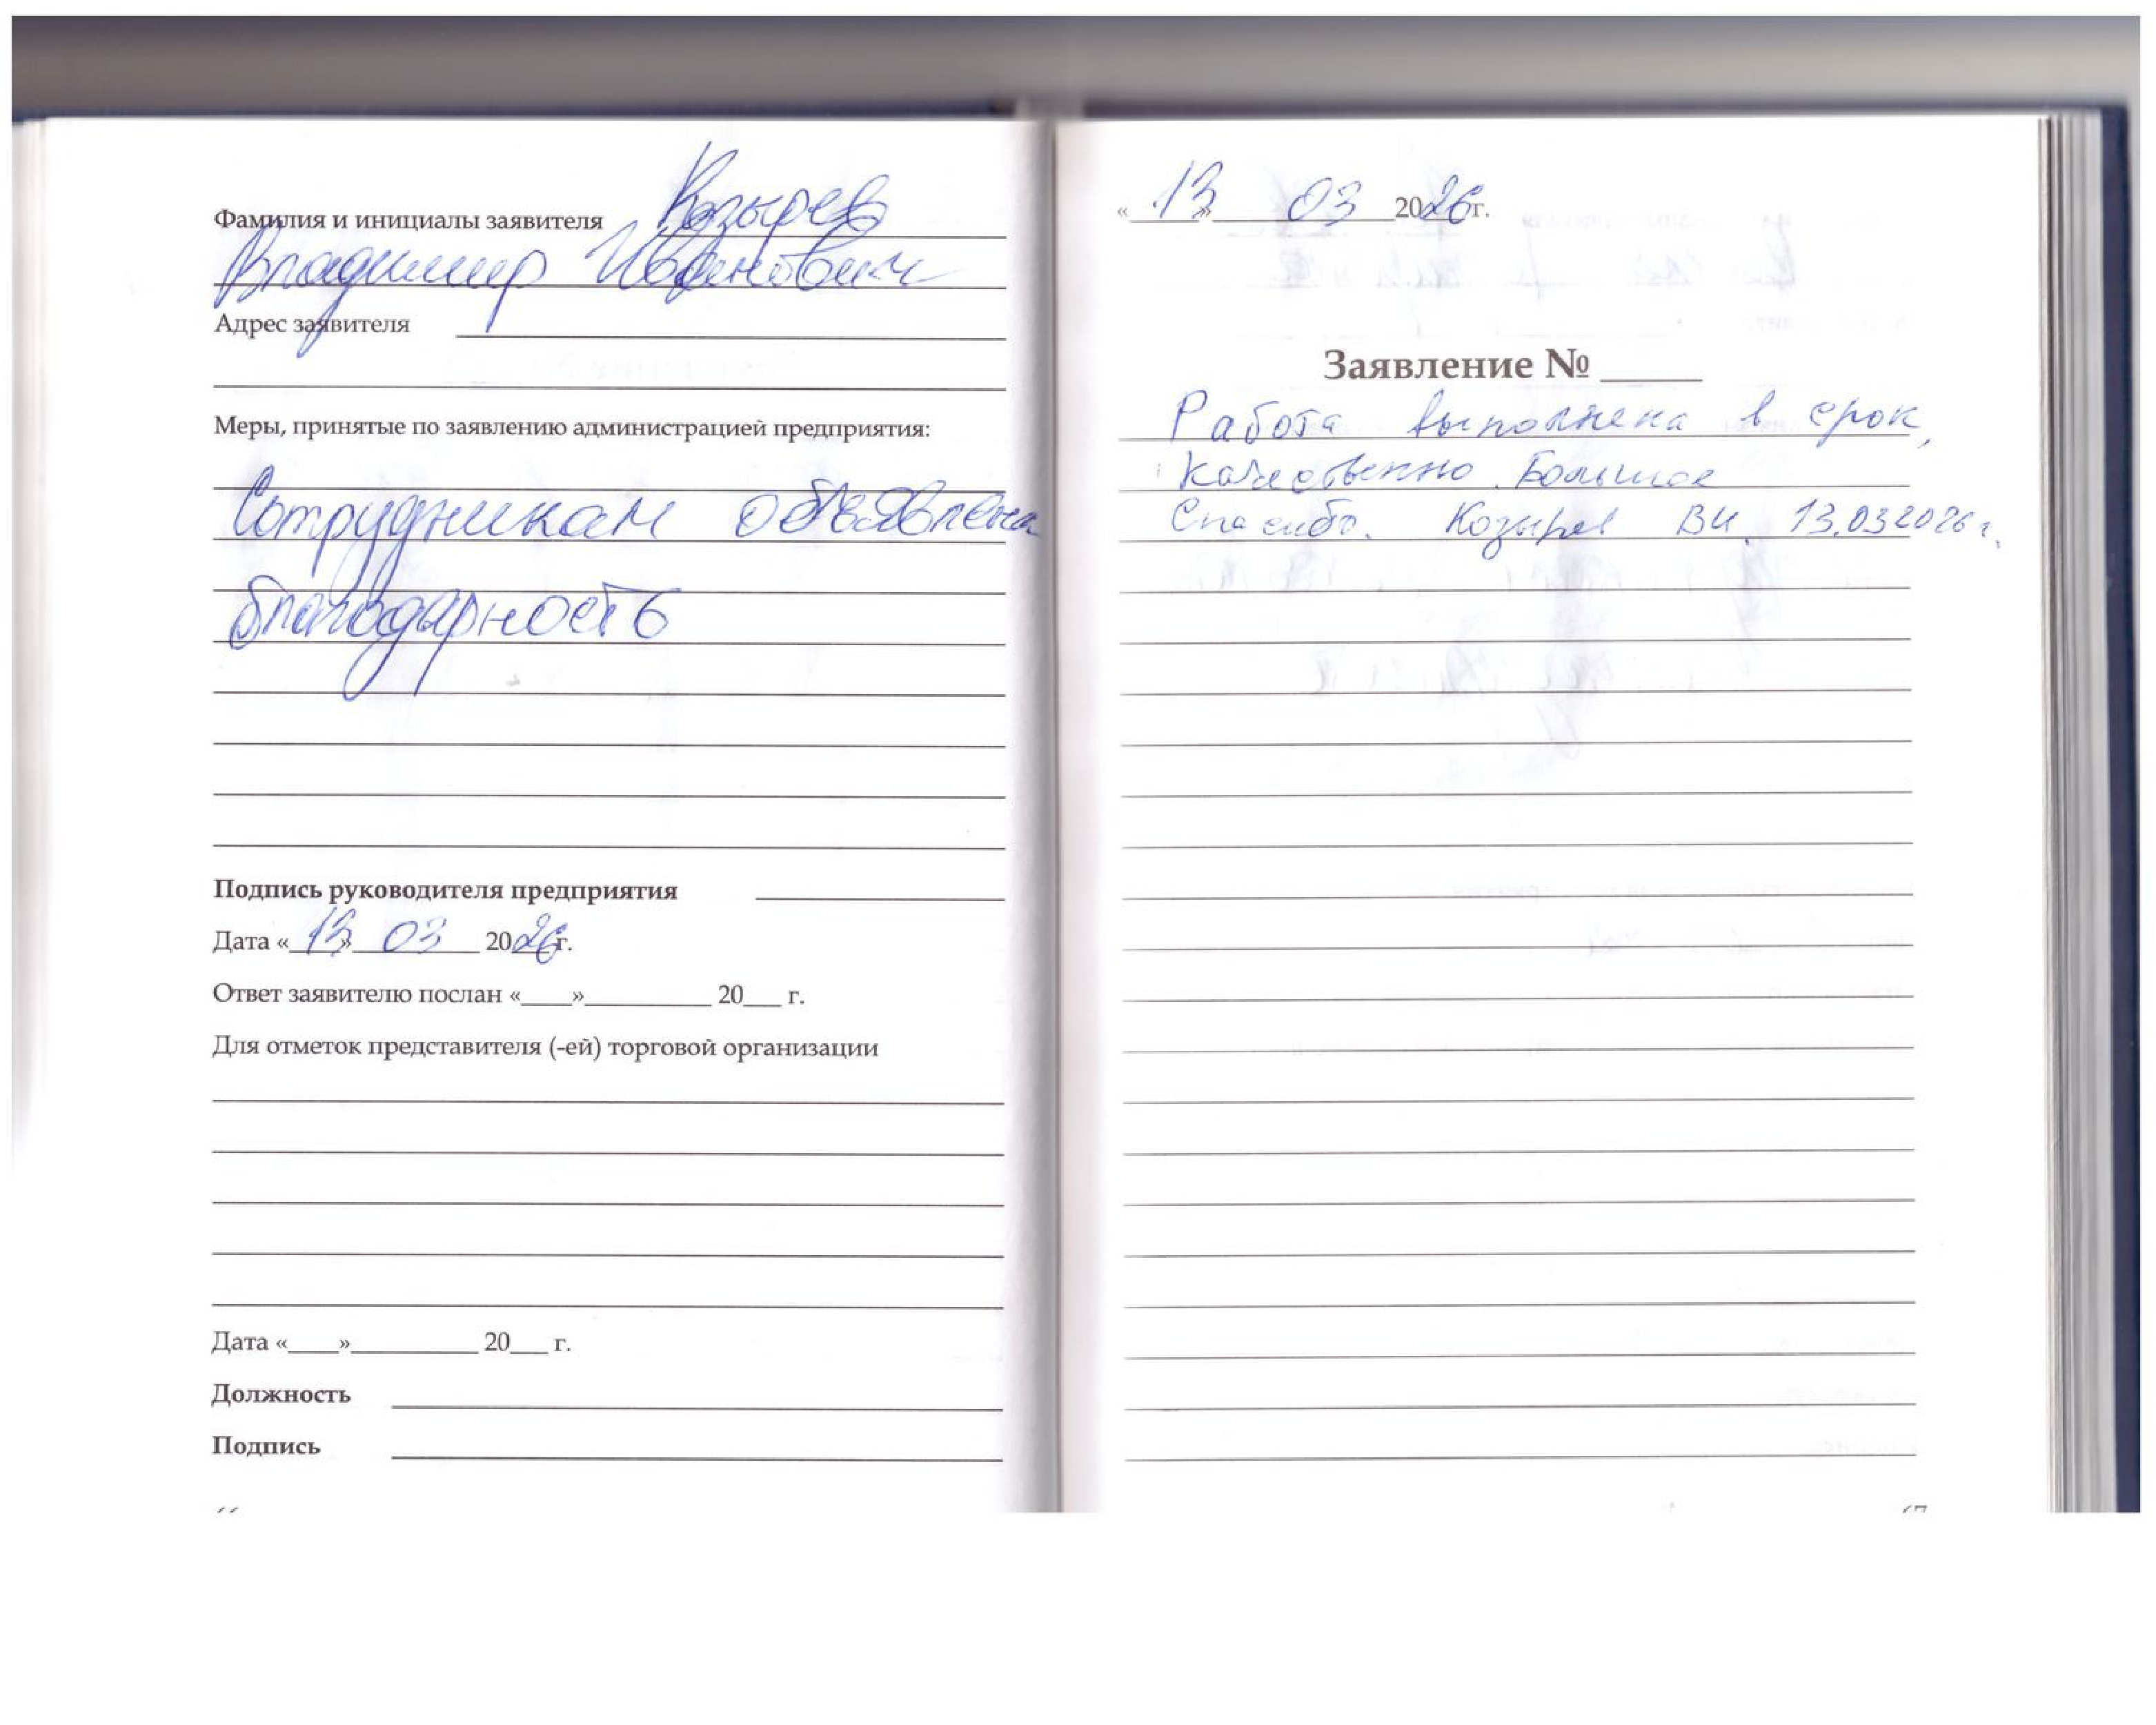 Фамилия и инициалы заявителя Козырев
Владимир Иванович
Адрес заявителя
Меры, принятые по заявлению администрацией предприятия:
Сотрудникам объявлена
благодарность
Подпись руководителя предприятия
Дата «13» 03 2026г.
Ответ заявителю послан «____»__________ 20___ г.
Для отметок представителя (-ей) торговой организации
Дата «____»__________ 20___ г.
Должность
Подпись
«13» 03 2026г.
Заявление № _____
Работа выполнена в срок,
качественно. Большое
Спасибо. Козырев ВИ. 13.03 2026 г.